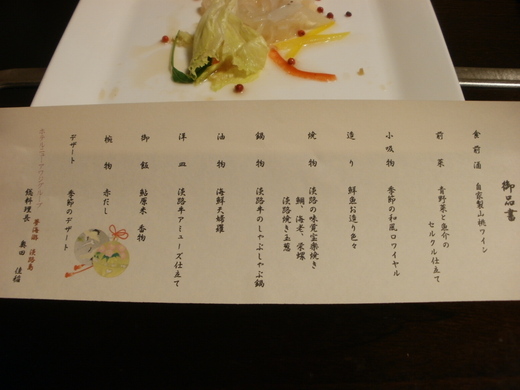 御品書
食前酒 自家製山桃ワイン
前菜 青野菜と魚介の
セルクル仕立て
小吸物 季節の和風ロワイヤル
造り 鮮魚お造り色々
焼物 淡路の味覚宝楽焼き
鯛、海老、栄螺
淡路焼き玉葱
鍋物 淡路牛のしゃぶしゃぶ鍋
油物 海鮮天婦羅
洋皿 淡路牛アミューズ仕立て
御飯 鮎原米 香物
椀物 赤だし
デザート 季節のデザート
ホテルニューアワジグループ
夢海游 淡路島
総料理長 奥田